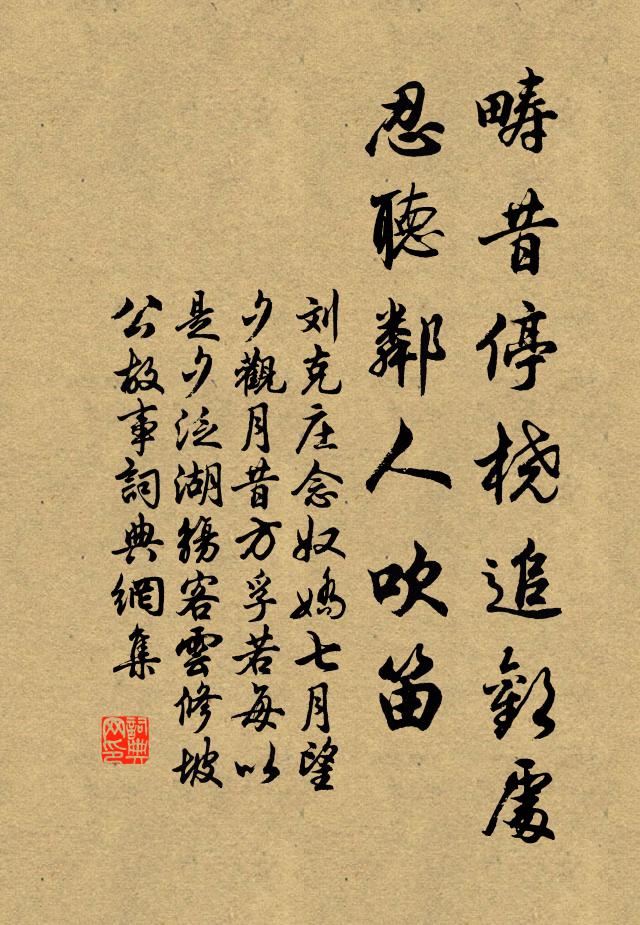 疇昔停桡追歡處
忍聽鄰人吹笛
刘克庄念奴嬌七月望
夕觀月昔方孚若每以
是夕泛湖觴客雲修坡
公故事詞典網集
詞典
网印